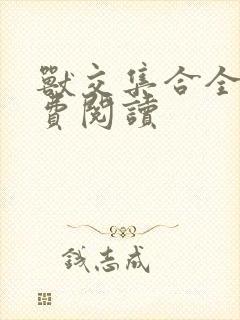 獸交集合全
費閱讀
錢志成